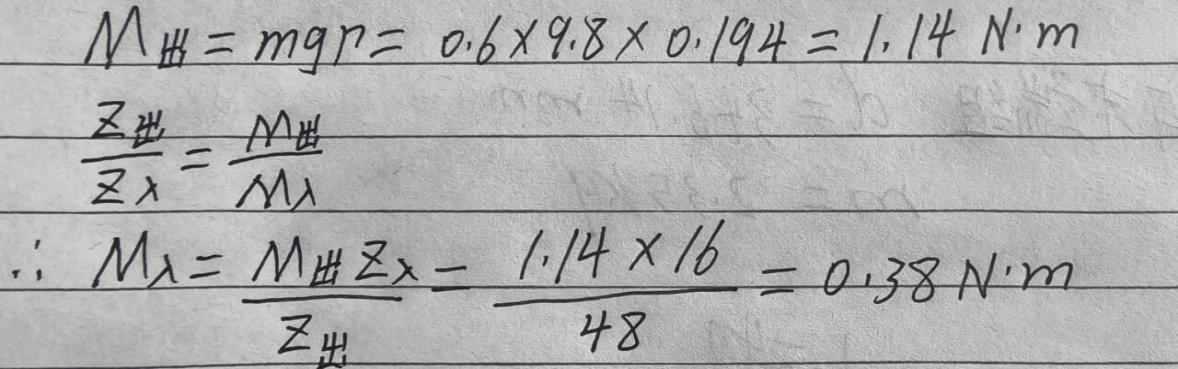 M出 = mgr = 0.6×9.8×0.194 = 1.14 N·m
Z出/Z入 = M出/M入
∴ M入 = M出Z入/Z出 = 1.14×16/48 = 0.38 N·m